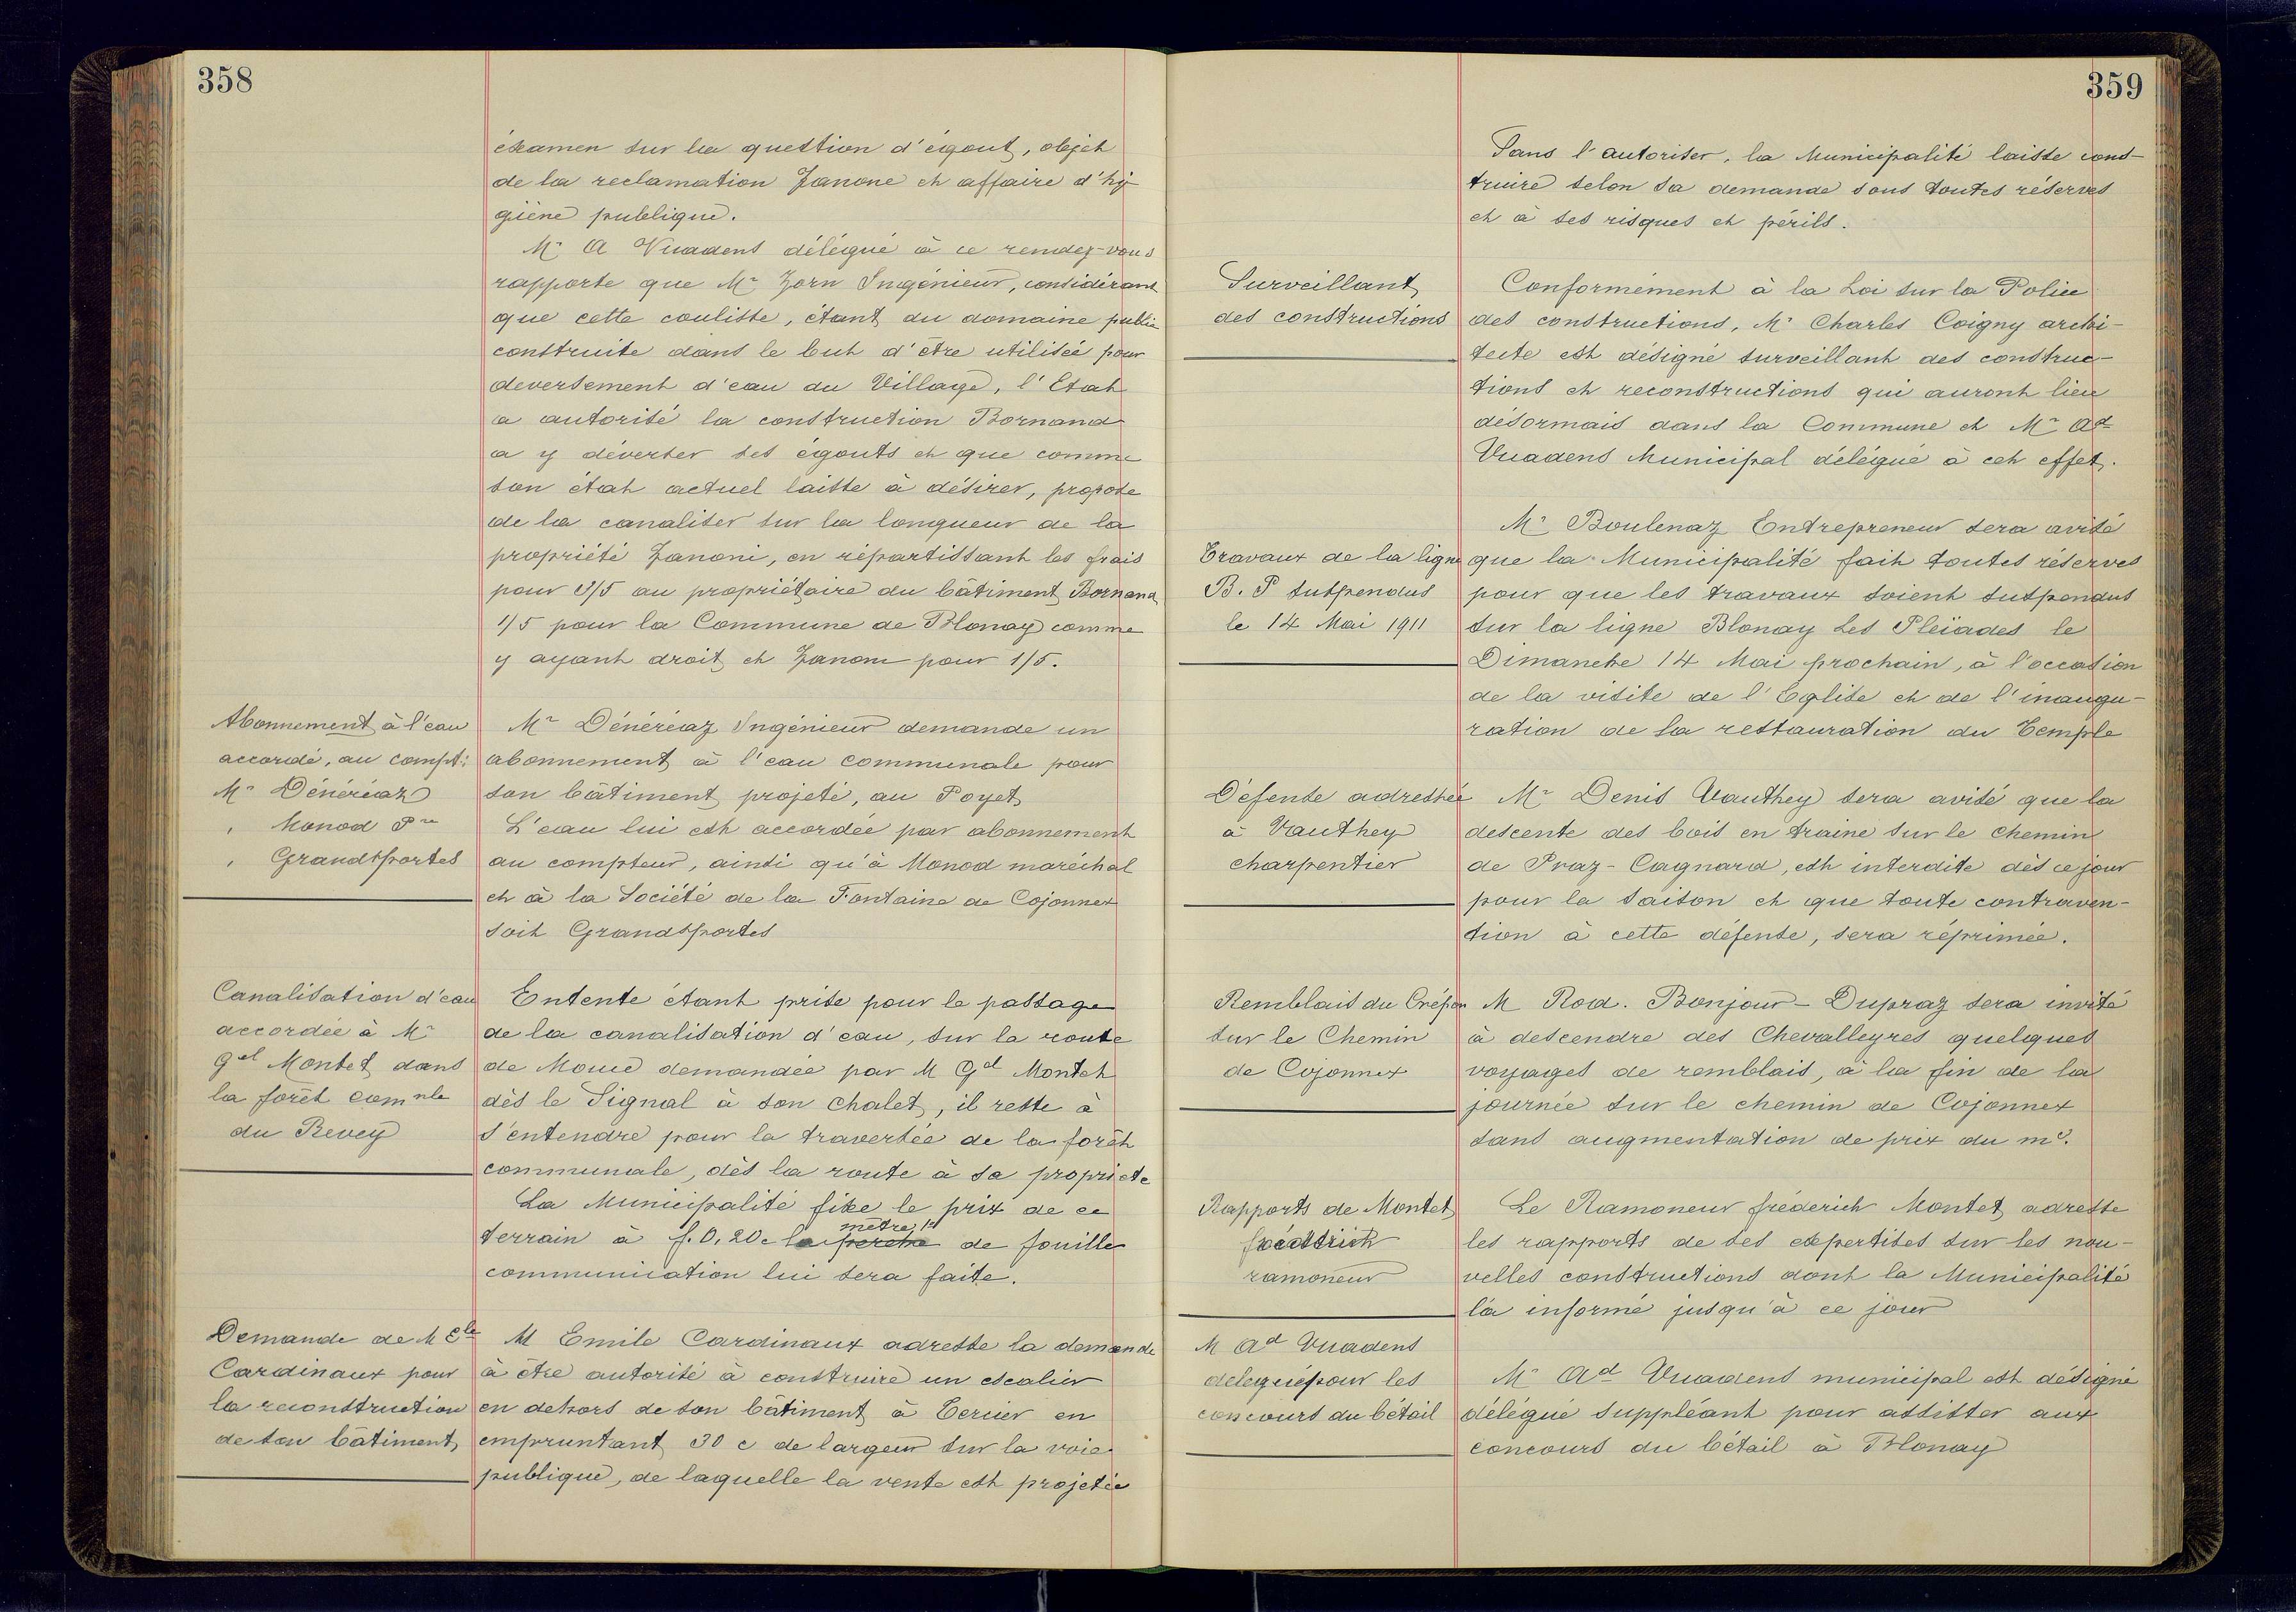 358
éxamen sur la question d'égout, objet
de la reclamation Zanone et affaire d'hy-
giène publique.
Mr A Vuadens délégué à ce rendez-vous
rapporte que Mr Zorn Ingénieur, considérant
que cette coulisse, étant du domaine public
construite dans le but d'être utilisée pour
deversement d'eau du Village, l'Etat
a autorisé la construction Bornand
a y déverser ses égouts et que comme
son état actuel laisse à désirer, propose
de la canaliser sur la longueur de la
propriété Zanoni, en répartissant les frais
pour 3/5 au propriétaire du bâtiment Bornand
1/5 pour la Commune de Blonay comme
y ayant droit et Zanoni pour 1/5.
Abonnement à l'eau
accordé, au compt:
Mr Dénéréaz
" Monod
" Grandsportes
Mr Dénéréaz Ingénieur demande un
abonnement à l'eau communale pour
son bâtiment projeté, au Poyet
L'eau lui est accordée par abonnement
au compteur, ainsi qu'à Monod maréchal
et à la Société de la Fontaine de Cojonnex
soit Grandsportes
Canalisation d'eau
accordée à Mr
Gel Montet dans
la forêt comnle
du Revey
Entente étant prise pour le passage
de la canalisation d'eau, sur la route
de Mouse demandée par M Gel Montet
dès le Signal à son chalet, il reste à
s'entendre pour la traversée de la forêt
communale, dès la route à sa propriete
La Municipalité fixe le prix de ce
terrain à f. 0,20c la perche mètre de fouille
communication lui sera faite.
Demande de M Ele
Cardinaux pour
la reconstruction
de son bâtiment
M Emile Cardinaux adresse la demande
à être autorisé à construire un escalier
en dehors de son bâtiment à Tercier en
empruntant 30 c de largeur sur la voie
publique, de laquelle la vente est projetée
359
Sans l'autoriser, la Municipalité laisse cons-
truire selon sa demande sous toutes réserves
et à ses risques et périls.
Surveillant
des constructions
Conformément à la Loi sur la Police
des constructions, Mr Charles Coigny archi-
tecte est désigné surveillant des construc-
tions et reconstructions qui auront lieu
désormais dans la Commune et Mr Ad
Vuadens Municipal délégué à cet effet.
Travaux de la ligne
B. P suspendus
le 14 Mai 1911
Mr Boulenaz Entrepreneur sera avisé
que la Municipalité fait toutes réserves
pour que les travaux soient suspendus
sur la ligne Blonay Les Pleïades le
Dimanche 14 Mai prochain, à l'occasion
de la visite de l'Eglise et de l'inaugu-
ration de la restauration du Temple
Défense adressée
à Vauthey
charpentier
Mr Denis Vauthey sera avisé que la
descente des bois en traine sur le chemin
de Praz-Cagnard, est interdite dès ce jour
pour la saison et que toute contraven-
tion à cette défense, sera réprimée.
Remblais du Crépon
sur le Chemin
de Cojonnex
M Rod. Bonjour-Dupraz sera invité
à descendre des Chevalleyres quelques
voyages de remblais, à la fin de la
journée sur le chemin de Cojonnex
sans augmentation de prix du m3.
Rapports de Montet
ramoneur
Le Ramoneur fréderich Montet adresse
les rapports de ses expertises sur les nou-
velles constructions dont la Municipalité
l'a informé jusqu'à ce jour
M Ad Vuadens
délégué pour les
concours du bétail
Mr Ad Vuadens municipal est désigné
délégué suppléant pour assister aux
concours du bétail à Blonay